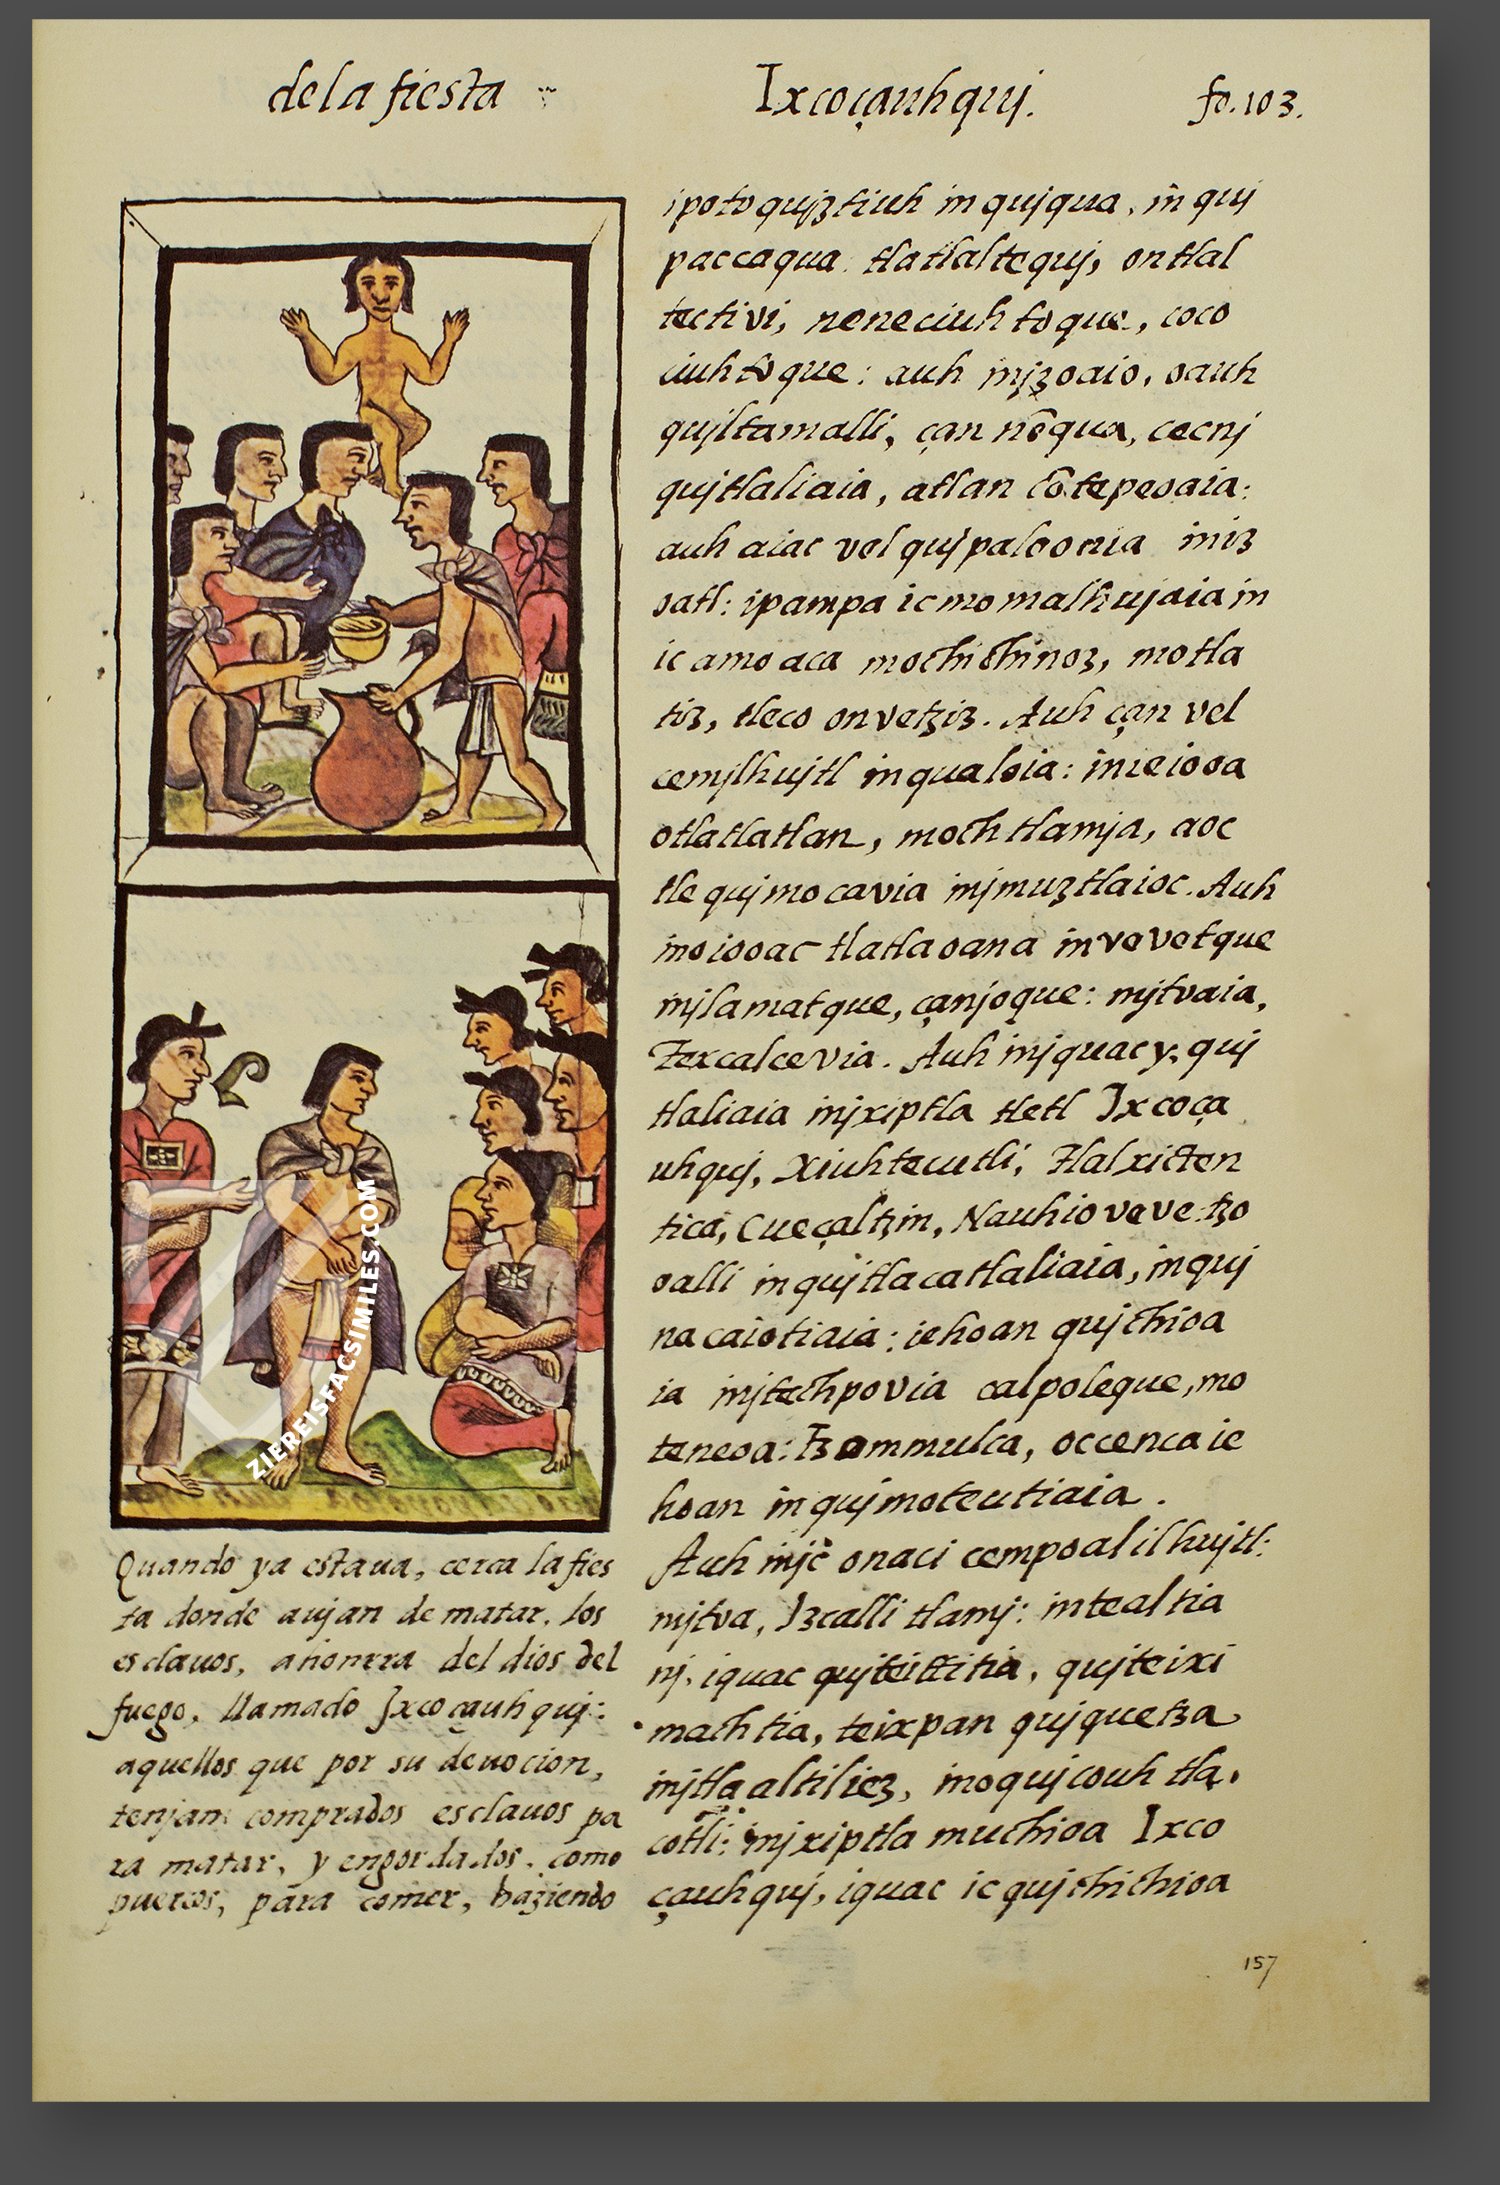 de la fiesta
Ixcoçauhquj.
fo. 103.
ipotoqujztiuh in qujqua, in quj
paccaqua. tlatlaltequj, ontlal
tectivi, neneciuhtoque, coco
ciuhtoque: auh injzoaio, oauh
qujltamalli, çan nēqua, cecnj
qujtlaliaia, atlan cōtepeoaia:
auh aiac vel qujpaloonia iniz
oatl: ipampa ic momalhujaia in
ic amo aca mochichinoz, motla
tiz, tleco onvetziz. Auh çan vel
cemjlhujtl in qualoia: in ie iooa
otlatlatlan, moch tlamja, aoc
tle qujmocavia injmuztlaioc. Auh
in oiooac tlatlaoana in vevetque
injlamatque, çanjoque: mjtoaia,
Texcalcevia. Auh injquac y, quj
tlaliaia injxiptla tletl Ixcoça
uhquj, Xiuhtecutli, Tlalxicten
tica, Cueçaltzin, Nauhiovevetzo
oalli in qujtlacatlaliaia, in quj
nacaiotiaia: iehoan qujchioa
ia injtechpovia calpoleque, mo
teneoa: Tzommulca, occenca ie
hoan in qujmoteutiaia.
Auh injc onaci cempoalilhujtl:
mjtoa, Izcalli tlamj: in tealtia
nj, iquac qujteittitia, qujteixi
machtia, teixpan qujquetza
injtlaaltiliez, in oqujcouh tla,
cotli: injxiptla muchioa Ixco
çauhquj, iquac ic qujchichioa
Quando ya estaua, cerca la fies
ta donde aujan de matar, los
esclauos, a honrra del dios del
fuego, llamado Ixcoçauhquj:
aquellos que por su deuocion,
tenjan comprados esclauos pa
ra matar, y engordados, como
puercos, para comer, haziendo
157
ZIEREISFACSIMILES.COM